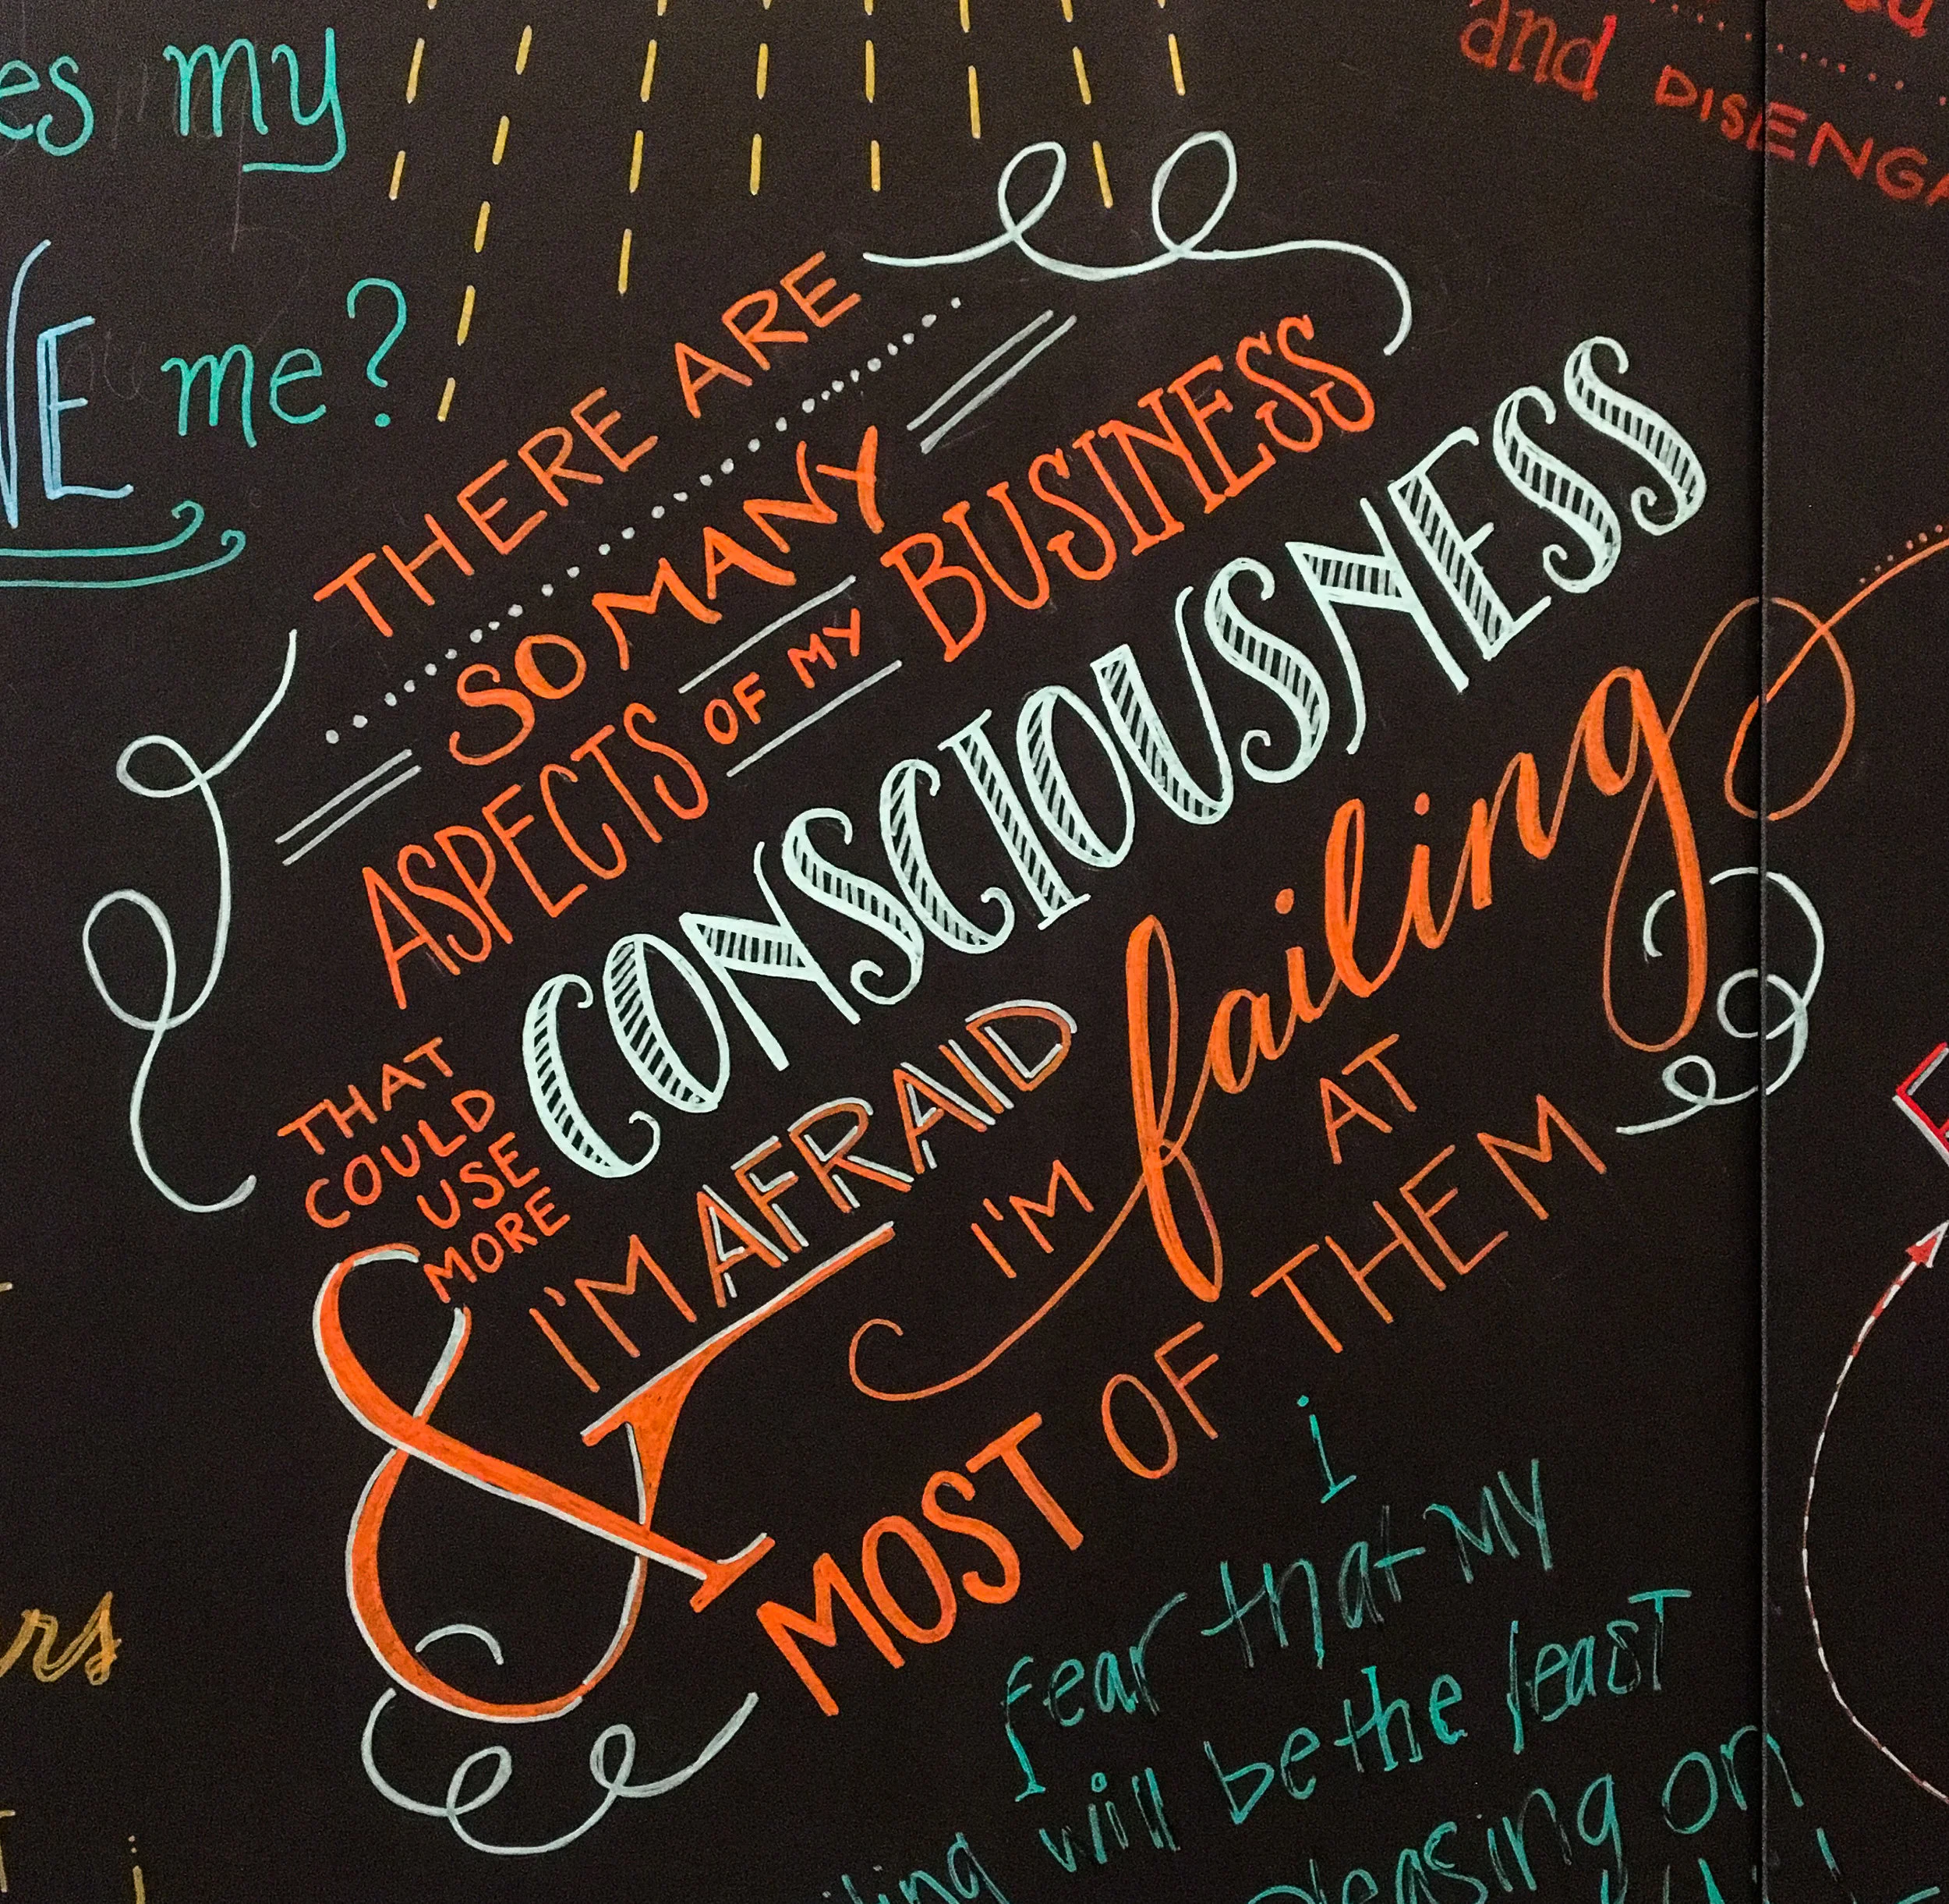 my
me?
and DISENGA
THERE ARE
SO MANY
ASPECTS OF MY BUSINESS
THAT
COULD
USE
MORE
CONSCIOUSNESS
& I'M AFRAID
I'M failing
AT
MOST OF THEM
i
fear that MY
will be the leasT
pleasing on